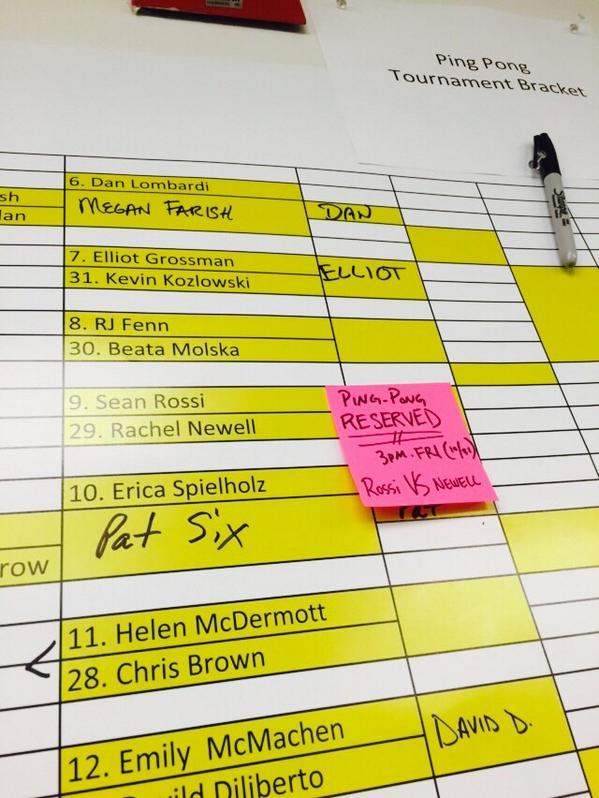 Ping Pong
Tournament Bracket
6. Dan Lombardi
sh
lan
MEGAN FARISH
DAN
7. Elliot Grossman
31. Kevin Kozlowski
ELLIOT
8. RJ Fenn
30. Beata Molska
9. Sean Rossi
29. Rachel Newell
PING-PONG
RESERVED
3PM. FRI (10/31)
ROSSI VS NEWELL
10. Erica Spielholz
Pat Six
PAT
row
11. Helen McDermott
28. Chris Brown
12. Emily McMachen
DAVID D.
Diliberto
Sharpie